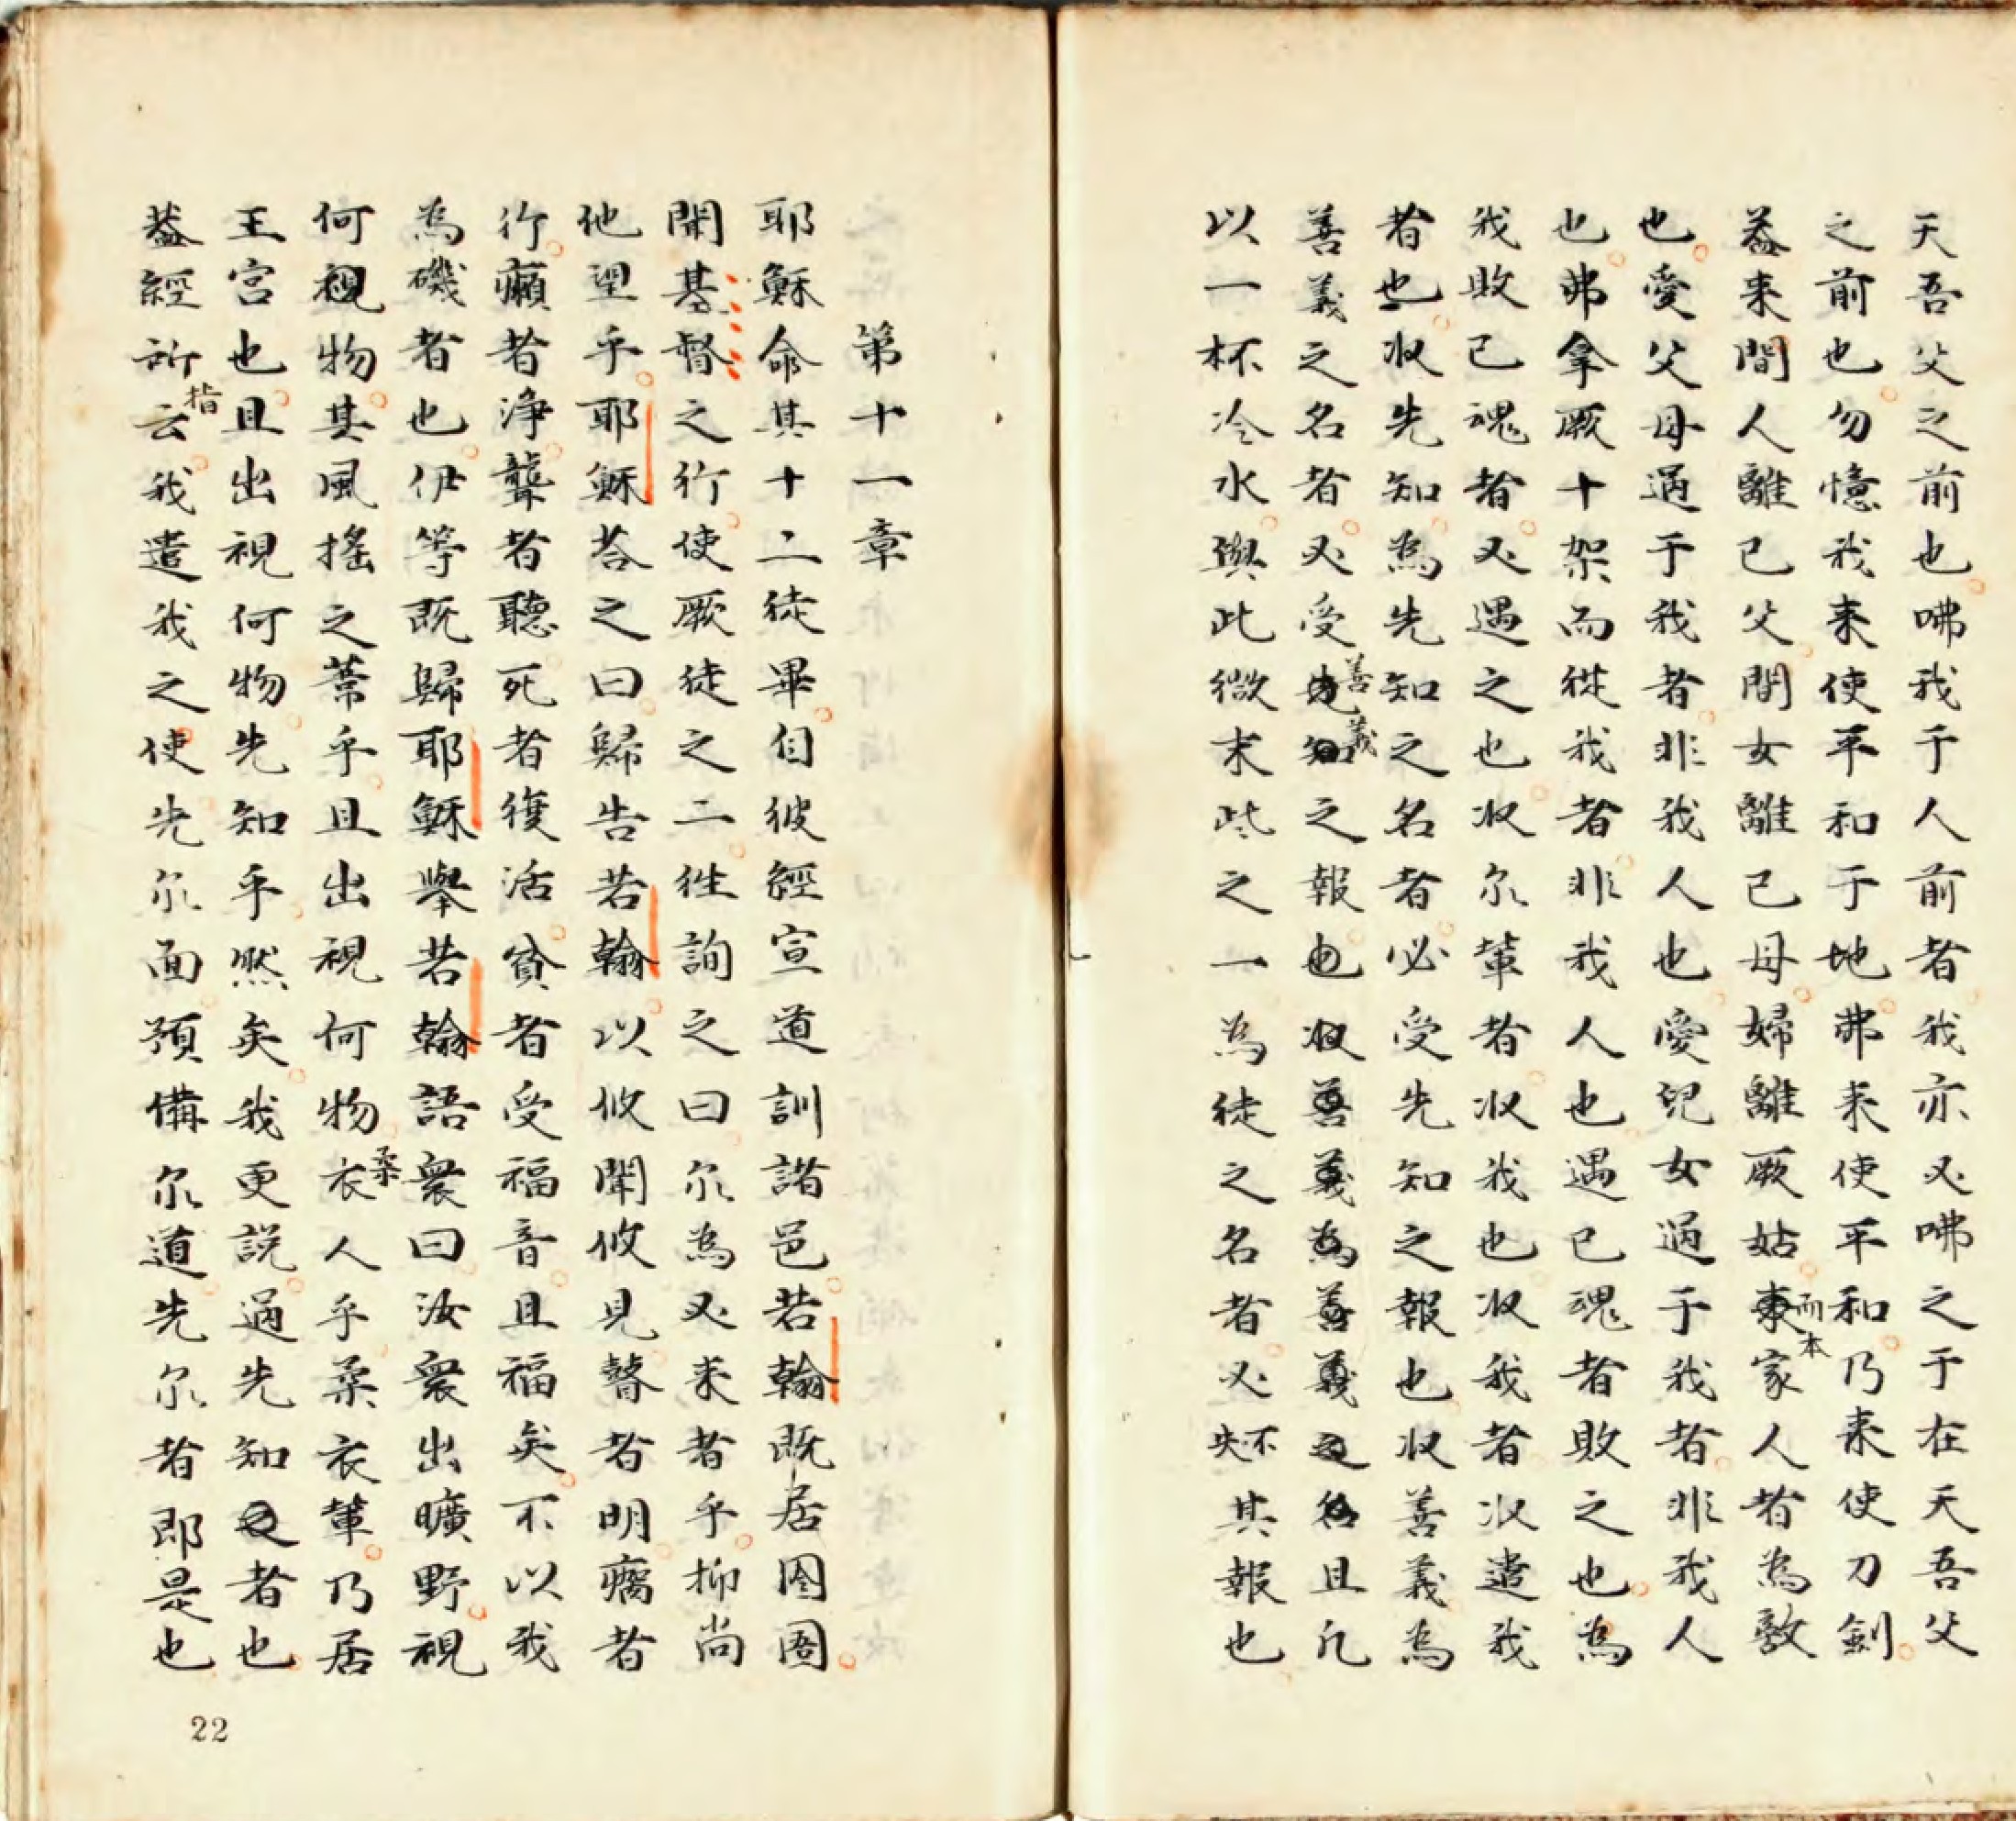 天吾父之前也咈我于人前者我亦必咈之于在天吾父
之前也勿憶我来使平和于地弗来使平和乃来使刀劍
葢来間人離己父間女離己母婦離厥姑而本家人者為敵
也愛父母過于我者非我人也愛兒女過于我者非我人
也弗拿厥十架而從我者非我人也遇己魂者敗之也為
我敗己魂者必遇之也收尔輩者收我也收我者收遣我
者也收先知為先知之名者必受先知之報也收善義為
善義之名者必受善義之報也且凡
以一杯冷水與此微末些之一為徒之名者必不失其報也
第十一章
耶穌命其十二徒畢自彼經宣道訓諸邑若翰既居囹圄
聞基督之行使厥徒之二往詢之曰尔為必来者乎抑尚
他望乎耶穌荅之曰歸告若翰以攸聞攸見瞽者明瘸者
行癩者淨聾者聽死者復活貧者受福音且福矣不以我
為磯者也伊等既歸耶穌舉若翰語衆曰汝衆出曠野視
何視物其風搖之葦乎且出視何物柔衣人乎柔衣輩乃居
王宮也且出視何物先知乎然矣我更説過先知者也
葢經所指云我遣我之使先尔面預備尔道先尔者即是也
22